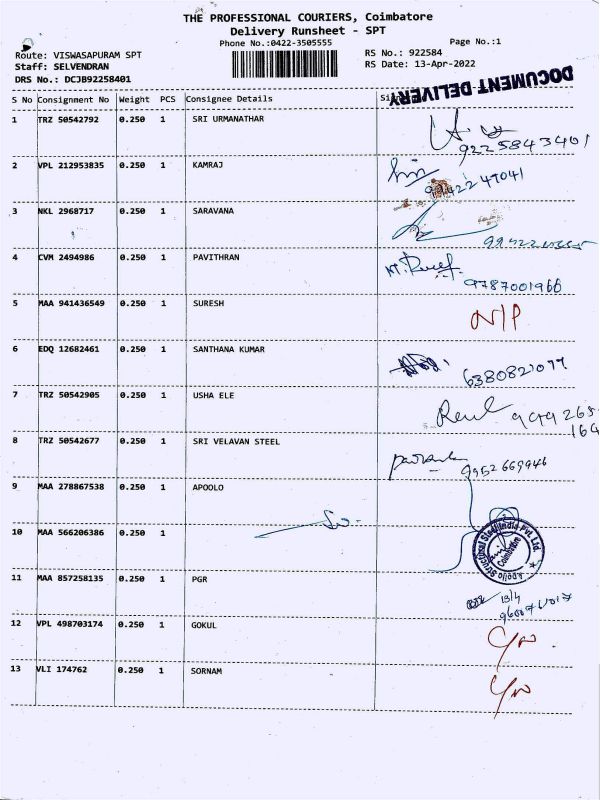 THE PROFESSIONAL COURIERS, Coimbatore
Delivery Runsheet - SPT
Phone No.:0422-3505555
Page No.:1
Route: VISWASAPURAM SPT
RS No.: 922584
Staff: SELVENDRAN
RS Date: 13-Apr-2022
DRS No.: DCJB92258401
DOCUMENT DELIVERY
S No Consignment No Weight PCS Consignee Details
1 TRZ 50542792 0.250 1 SRI URMANATHAR
9225843401
2 VPL 212953835 0.250 1 KAMRAJ
9942247041
3 NKL 2968717 0.250 1 SARAVANA
4 CVM 2494986 0.250 1 PAVITHRAN
9787001966
5 MAA 941436549 0.250 1 SURESH N/P
6 EDQ 12682461 0.250 1 SANTHANA KUMAR
6380821077
7 TRZ 50542905 0.250 1 USHA ELE
8 TRZ 50542677 0.250 1 SRI VELAVAN STEEL
9952669946
9 MAA 278867538 0.250 1 APOOLO
10 MAA 566206386 0.250 1
Apollo Structural Steel India Pvt. Ltd.
Coimbatore
11 MAA 857258135 0.250 1 PGR
13/4
12 VPL 498703174 0.250 1 GOKUL
13 VLI 174762 0.250 1 SORNAM